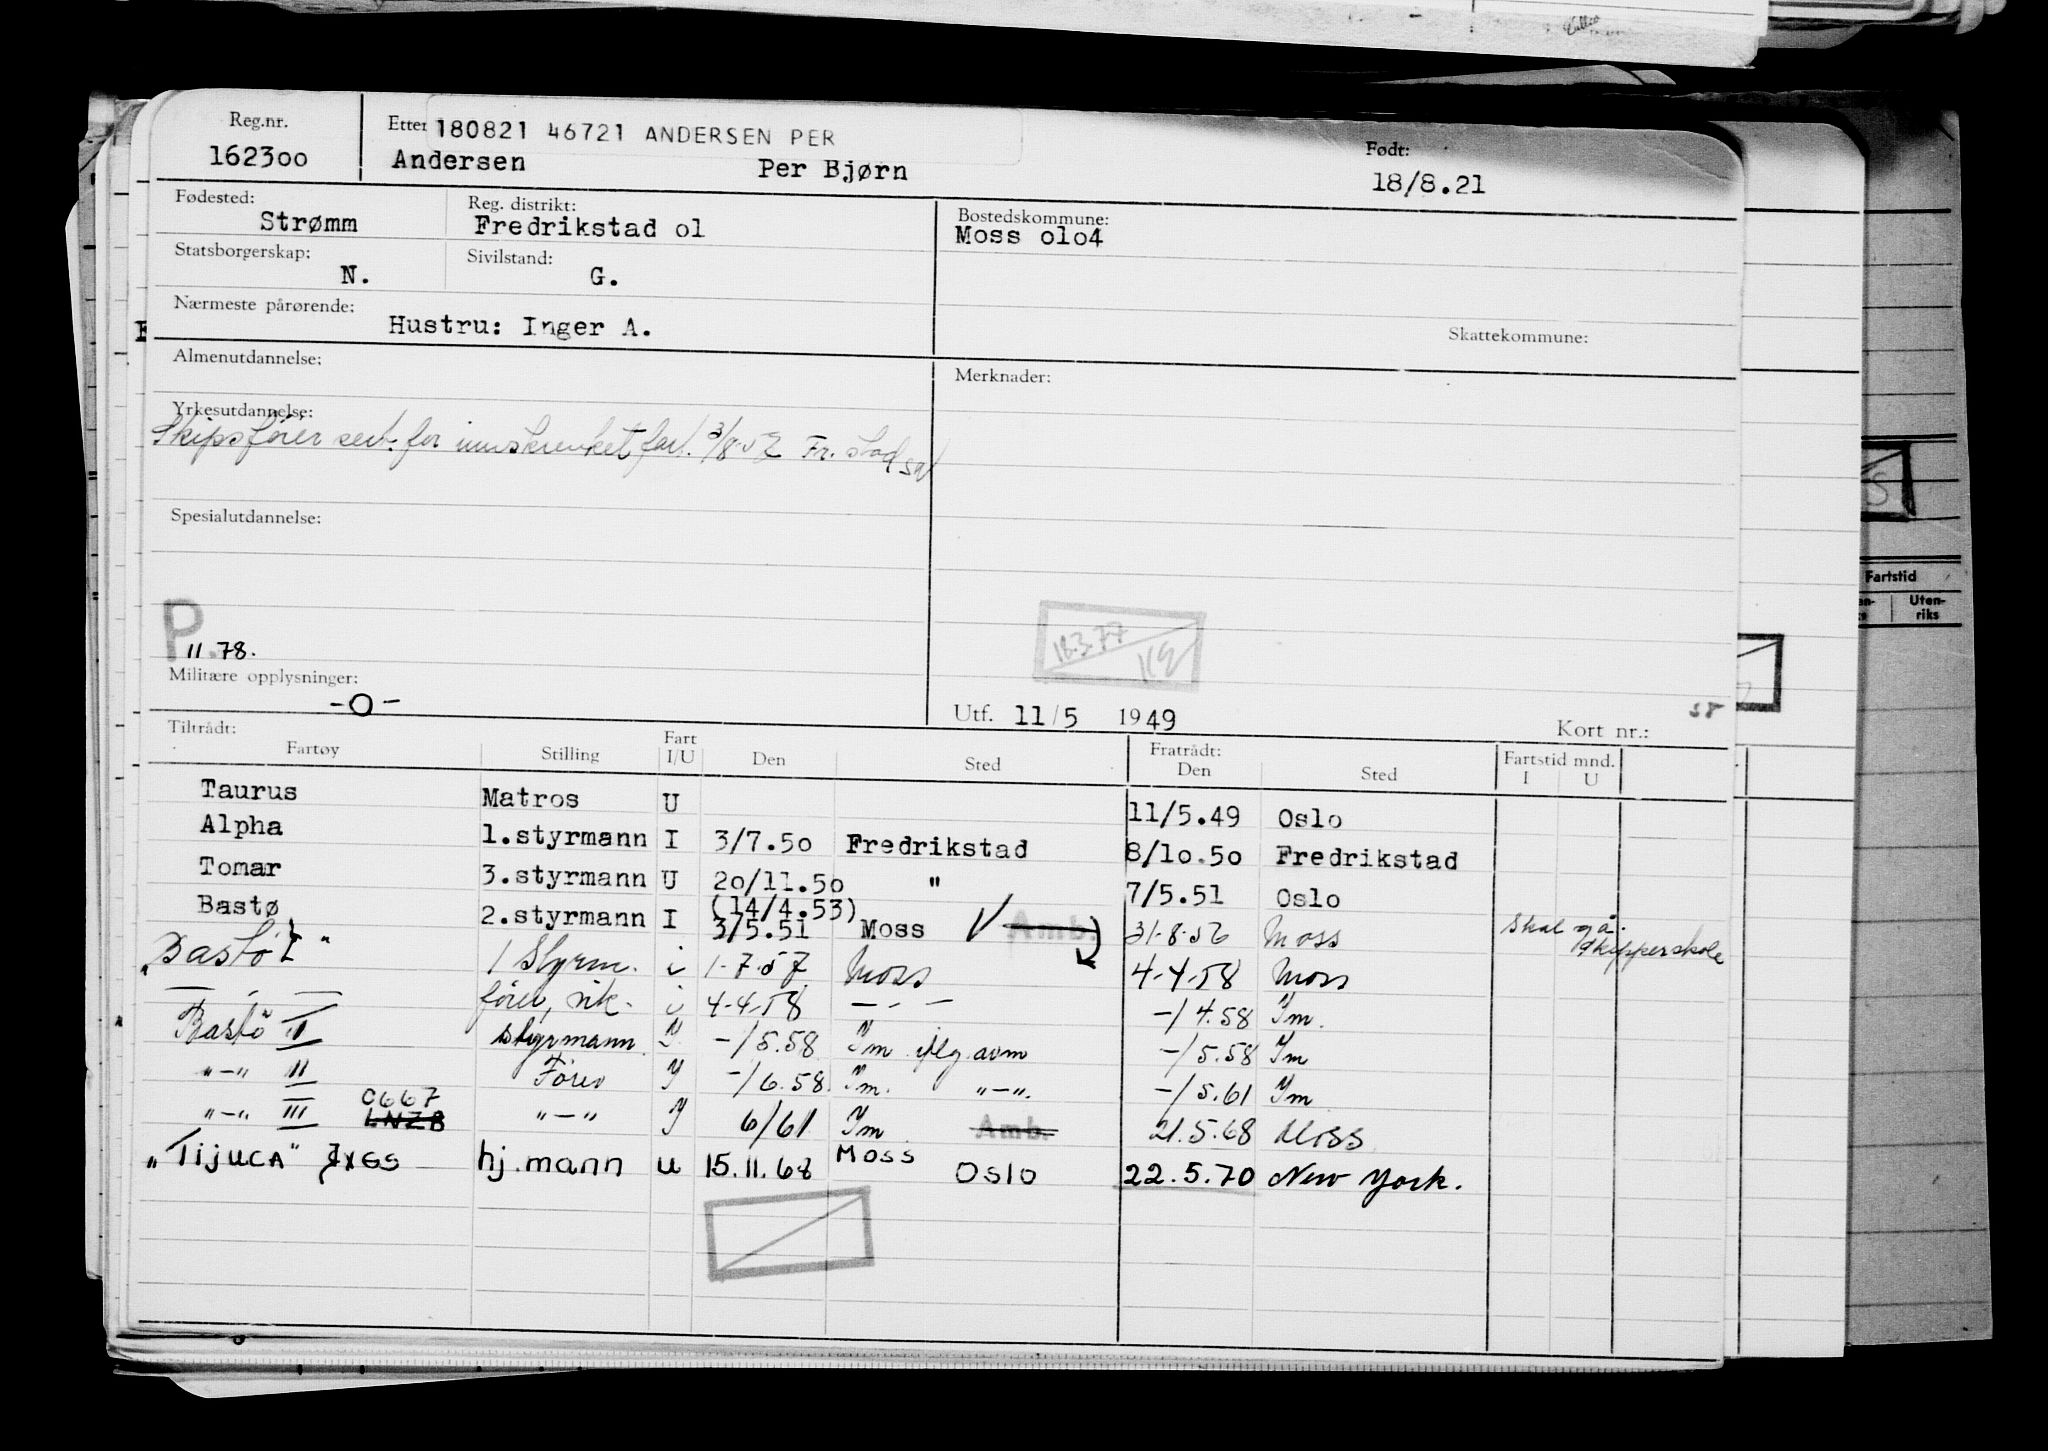 Reg.nr.
162300
Etter 180821 46721 ANDERSEN PER
Andersen Per Bjørn
Født:
18/8.21
Fødested:
Strømm
Reg. distrikt:
Fredrikstad ol
Bostedskommune:
Moss olo4
Statsborgerskap:
N.
Sivilstand:
G.
Nærmeste pårørende:
Hustru: Inger A.
Skattekommune:
Almenutdannelse:
Merknader:
Yrkesutdannelse:
Skipsfører sert. for innskrenket fart. 3/8.52 Fr.stad
Spesialutdannelse:
P
11.78.
18.3.77
Militære opplysninger:
-O-
Utf. 11/5 1949
58
Kort nr.:
Tiltrådt:
Fartøy Stilling Fart I/U Den Sted Fratrådt: Den Sted Fartstid mnd. I U
Taurus Matros U 11/5.49 Oslo
Alpha 1.styrmann I 3/7.50 Fredrikstad 8/10.50 Fredrikstad
Tomar 3.styrmann U 20/11.50 " 7/5.51 Oslo
(14/4.53)
Bastø 2.styrmann I 3/5.51 Moss Amb. 31.8.56 Moss Skal gå
skipperskole
"Bastö I" 1 Styrm. i 1.7.57 Moss 4-4-58 Moss
— " — fører, vik. i 4-4-58 — " — -/4.58 Im.
Bastö II styrmann I -/5.58 Im iflg. avm -/5.58 Im
"-" III Förer I -/6.58 Im. "-". -/5.61 Im
C667
"-" III LNZB "-" I 6/61 Im Amb. 21.5.68 Moss
Moss
"TIJUCA" JXGS hj.mann u 15.11.68 Oslo 22.5.70 New York.
Fartstid
Uten-
riks